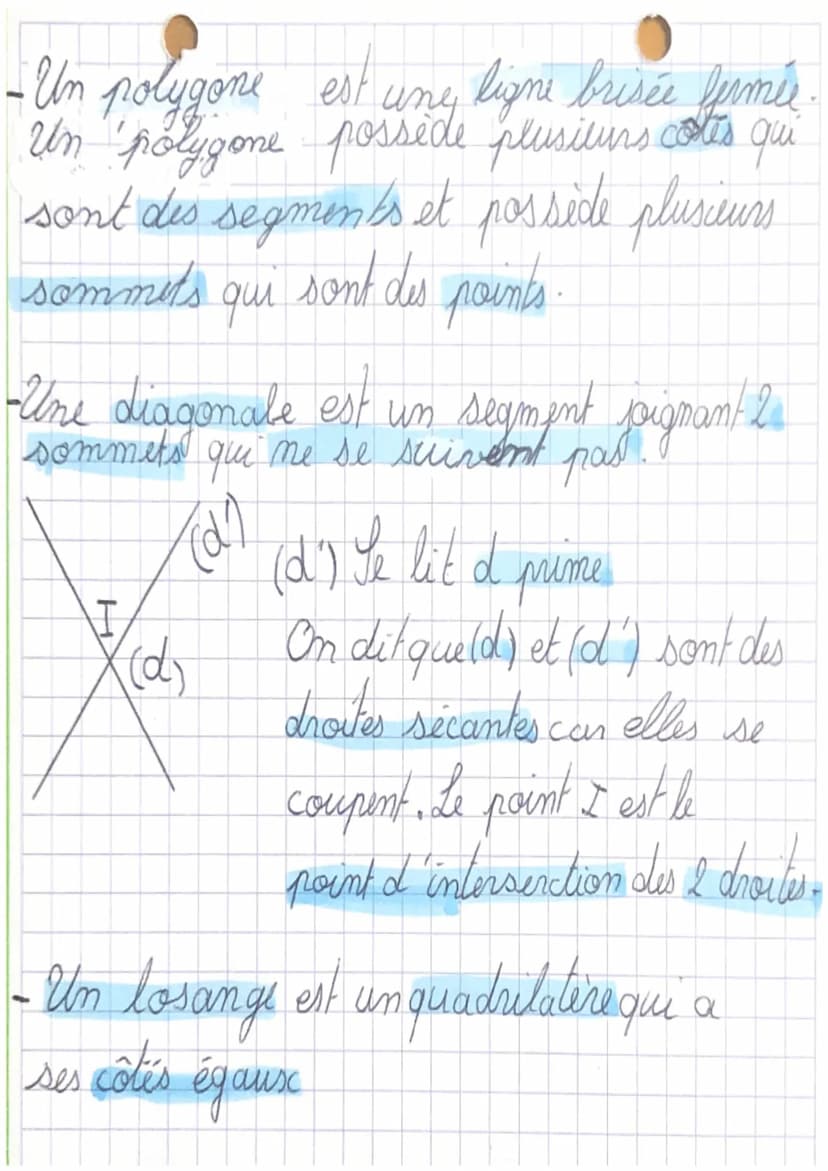 - Un polygone est une ligne brisée fermée.
Un polygone possède plusieurs cotés qui
sont des segments et possède plusieurs
sommets qui sont des points.
- Une diagonale est un segment joignant 2
sommets qui ne se suivent pas.
(d')
I
(d)
(d') Se lit d prime
On dit que (d) et (d') sont des
droites sécantes car elles se
coupent. Le point I est le
point d'interserction des 2 droites.
- Un losange est un quadrilatère qui a
ses côtés égaux